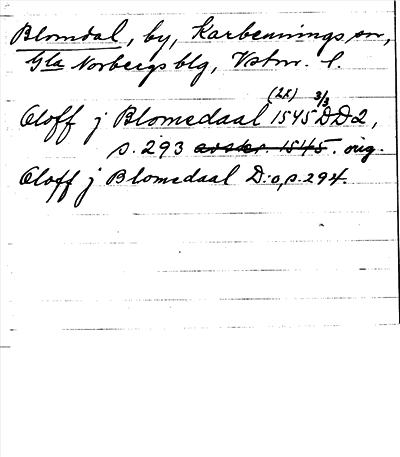 Blomdal, by, Karbennings sn,
Gla Norbergs blg, Vstm. l.
(2x) 3/3
Oloff j Blomsdaal 1545 DD2,
s. 293 avskr. 1545. orig.
Oloff j Blomsdaal D:o, s. 294.